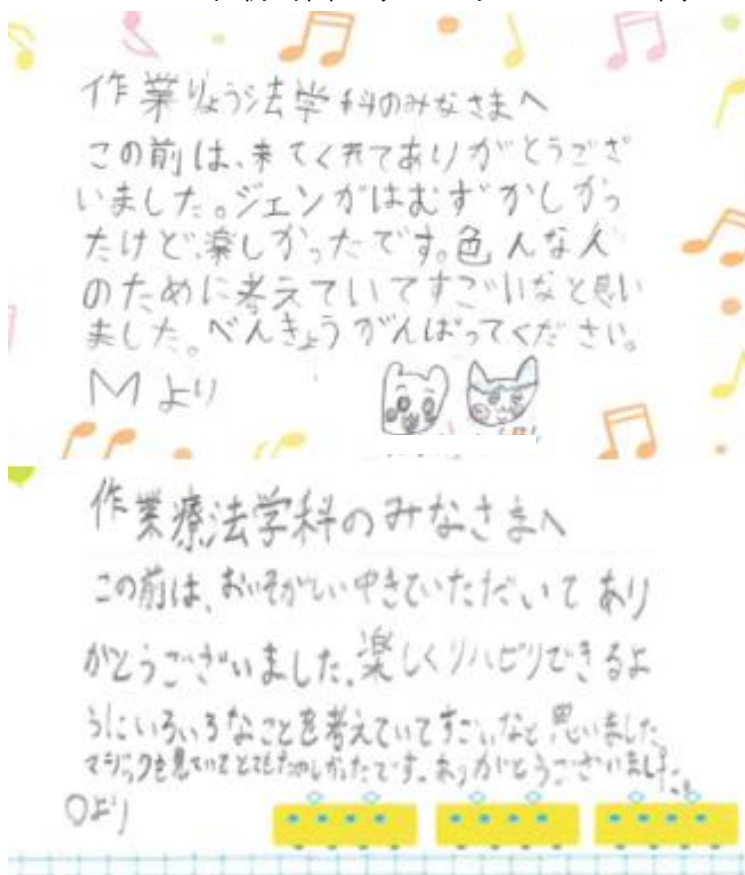 作業りょう法学科のみなさまへ
この前は、来てくれてありがとうござ
いました。ジェンガはむずかしかっ
たけど、楽しかったです。色んな人
のために考えていてすごいなと思い
ました。べんきょうがんばってください。
Mより
作業療法学科のみなさまへ
この前は、おいそがしい中きていただいてあり
がとうございました。楽しくリハビリできるよ
うにいろいろなことを考えていてすごいなと思いました。
マジックを見ていてとてもたのしかったです。ありがとうございました。
Oより